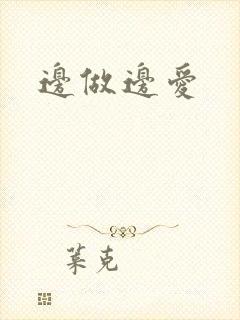 邊做邊愛
葉克